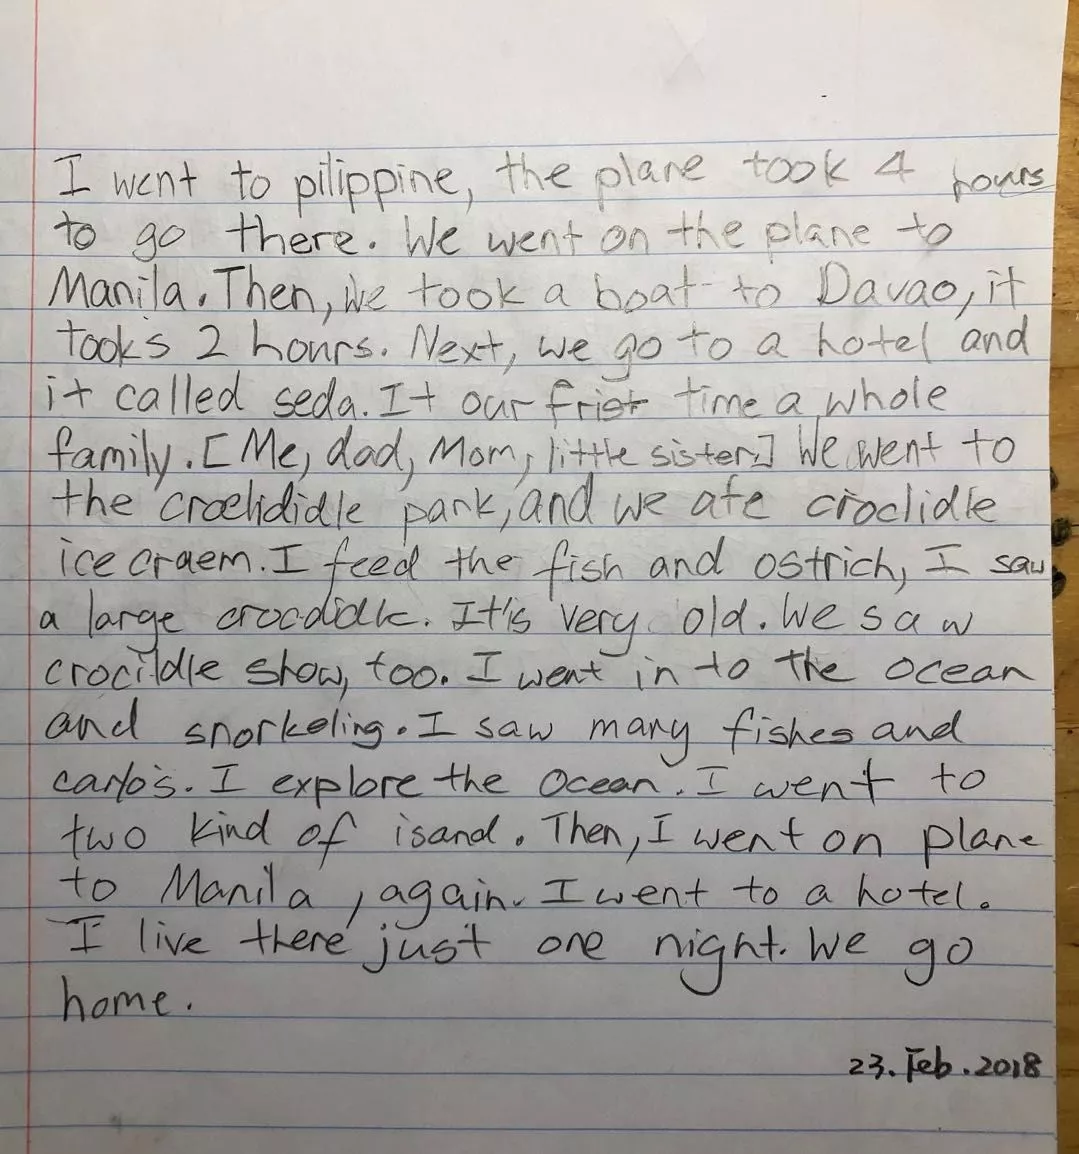 I went to pilippine, the plane took 4 hours
to go there. We went on the plane to
Manila. Then, We took a boat to Davao, it
tooks 2 hours. Next, we go to a hotel and
it called seda. It our frist time a whole
family. [Me, dad, Mom, little sister.] We went to
the croclididle park, and we ate croclidle
ice craem. I feed the fish and ostrich, I saw
a large crocdidle. It's very old. We saw
crocildle show, too. I went in to the ocean
and snorkeling. I saw many fishes and
I explore the Ocean. I went to
two kind of isand. Then, I went on plane
to Manila, again. I went to a hotel.
I live there just one night. We go
home.
23. Feb. 2018